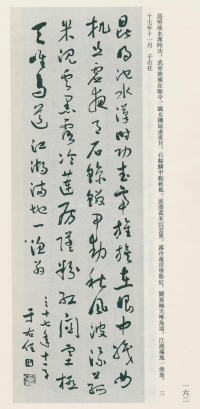 昆明池水漢時功，武帝旌旗在眼中。織女機絲虛夜月，石鯨鱗甲動秋風。波漂菰米沉雲黑，露冷蓮房墜粉紅。關塞極天唯鳥道，江湖滿地一漁翁。　三
十七年十一月　于右任
昆明池水漢時功武帝旌旗在眼中織女
機絲虛夜月石鯨鱗甲動秋風波漂菰
米沉雲黑露冷蓮房墜粉紅關塞極
天唯鳥道江湖滿地一漁翁
三十七年十一月
于右任
一六二